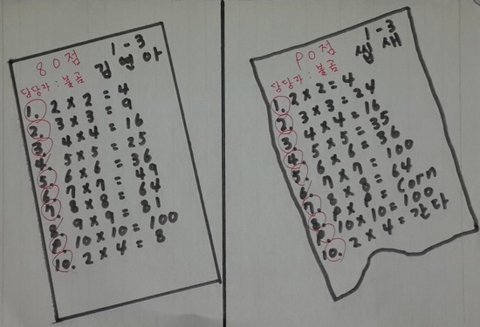 1-3
80점
담당자: 불곰
1. 2 × 2 = 4
2. 3 × 3 = 9
3. 4 × 4 = 16
4. 5 × 5 = 25
5. 6 × 6 = 36
6. 7 × 7 = 49
7. 8 × 8 = 64
8. 9 × 9 = 81
9. 10 × 10 = 100
10. 2 × 4 = 8
1-3
P0점
담당자: 불곰
1. 2 × 2 = 4
2. 3 × 3 = 24
3. 4 × 4 = 16
4. 5 × 5 = 35
5. 6 × 6 = 36
6. 7 × 7 = 100
7. 8 × 8 = 64
8. P × P = Corn
P. 10 × 10 = 100
10. 2 × 4 = 간다